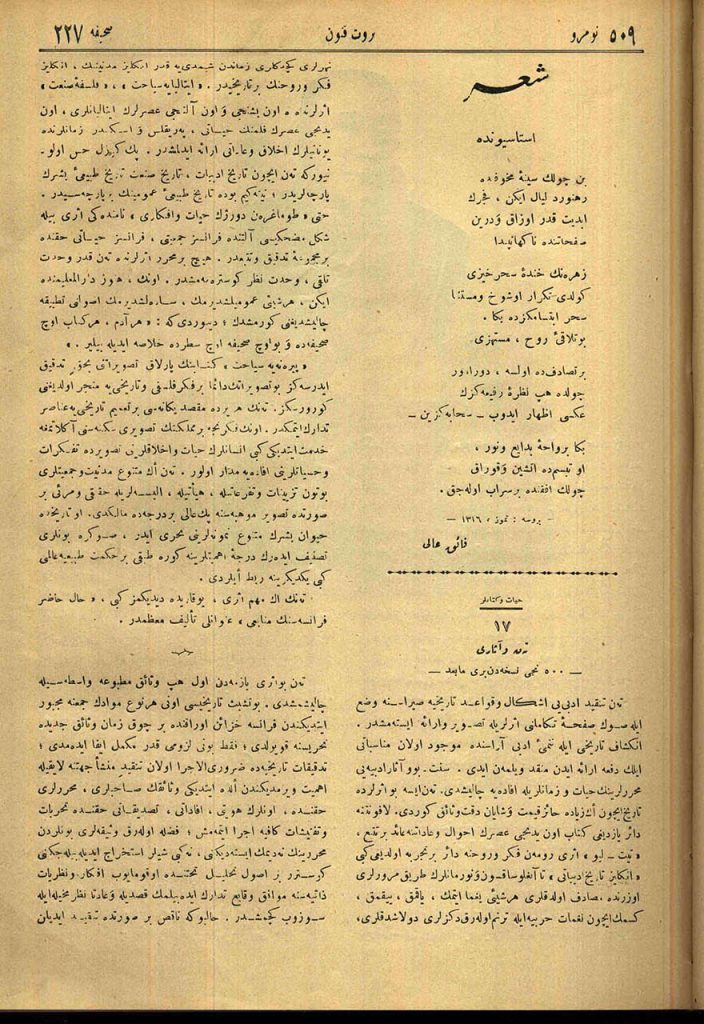 نومرو ٥٠٩
ثروت فنون
صحیفه ٢٢٧
شعر
استاسیونده
بن چولك سینهٔ مخوفنده
رهنورد لیال ایكن ، فجرك
ابدیت قدر اوزاق ودرین
صفحاتنده ناكهانیدا
زهره‌نك خندهٔ سحرخیزی
كولدی تكرار اوشوخ ومستثنا
سحر ابتسامكزده بكا .
بوتلاقیٔ روح ، مستهزی
بر تصادفده اولسه ، دورادور
چولده هپ نظرهٔ رفیعه‌كزك
عكسی اظهار ایدوب ــ سحابه‌كزین ــ
بكا برواحهٔ بدایع ونور ،
او تبسمده آتشین وقوراق
چولك افقنده برسراب اوله‌جق .
— بروسه : تموز ، ١٣١٦ —
فائق عالی
حیات وكتابلر
١٧
تەن وآثاری
— ٥٠٠ نجی نسخه‌دن‌بری مابعد —
تەن تنقید ادبی‌یی اشكال وقواعد تاریخیه صیراسنه وضع
ایله صوك صفحهٔ تكاملنی اثرلریله تصویر وارائه ایسته‌مشدر .
انكشاف تاریخی ایله نمیٔ ادبی آراسنده موجود اولان مناسباتی
ایلك دفعه ارائه ایدن منقد ویلمەن ایدی . سنت ـ بوو آثار ادبیه‌یی
محررلرینك حیات و زمانلریله افاده‌یه چالیشدی. تەن‌ایسه بو اثرلرده
تاریخ ایچون اك زیاده حائز قیمت وشایان دقت وثائق كوردی. لافونتنه
دائر یازدیغی كتاب اون یدنجی عصرك احوال وعاداتنه عائد برتتبع ،
« تیت ـ لیو » اثری رومەن فكر وروحنه دائر برتجربه اولدیغی كبی
« انكلیز تاریخ ادبیاتی » تا آنغلوساقسون ونورمانلرك طریق مرورلری
اوزرنده تصادف اولدقلری هرشیئی یغما ایتمك ، یاقمق ، ییقمق ،
كسمك ایچون نغمات حربیه ایله ترنم اوله‌رق دكزلری دولاشدقلری،
نهرلری كچدكلری زماندن شیمدی‌یه قدر انكلیز مدنیتنك ، انكلیز
فكر وروحنك برتاریخیدر . « ایتالیایه سیاحت » ، « فلسفهٔ صنعت »
اثرلرنده اون بشنجی واون آلتنجی عصرلرك ایتالیانلری ، اون
یدنجی عصرك فلمنك حیاتی ، په‌ریقلس واسكندر زمانلرنده
یونانیلرك اخلاق وعاداتی ارائه ایدلمشدر . پك كوزل حس اولو-
نیوركه تەن ایچون تاریخ ادبیات ، تاریخ صنعت تاریخ طبیعیٔ بشرك
پارچه‌لریدر ؛ نیته‌كیم بوده تاریخ طبیعیٔ عمومینك برپارچه‌سیدر .
حتی « طوماغره‌ن دورژك حیات وافكاری » نامنده‌كی اثری بیله
شكل مضحكیسی آلتنده فرانسز جمعیتی ، فرانسز حیاتی حقنده
برمجموعهٔ تدقیق وتنقیددر . هیچ برمحرر اثرلرنده تەن قدر وحدت
تلقی ، وحدت نظر كوسترمه‌مشدر . اونك ، هنوز دارالمعلمینده
ایكن ، هرشیئی عمومیلشدیرمك ، ساده‌لشدیرمك اصولنی تطبیقه
چالیشدیغنی كورمشدك ؛ دییوردی كه : « هرآدم ، هركتاب اوچ
صحیفه‌ده وبواوچ صحیفه اوچ سطرده خلاصه ایدیله بیلیر . »
« پیره‌نه‌یه سیاحت » كتابنك پارلاق تصویراتنی بحق تدقیق
ایدرسه‌كز بوتصویراتك دائما برفكرفلسفی وتاریخی‌یه منجر اولدیغنی
كورورسكز . تەنك هریرده مقصد یكانه‌سی برتعمیم تاریخی‌یه عناصر
تدارك ایتمكدر . اونك فكرنجه برمملكتك تصویری سكنه‌سنی آكلاتمغه
خدمت ایتدیكی كبی انسانلرك حیات واخلاقلرینی تصویرده تفكرات
وحسیاتلرینی افاده‌یه مدار اولور . تەن اك متنوع مدنیت وجمعیتلری
بوتون تزیینات وتفرعاتیله ، هیأتیله ، البسه‌لریله حقیقی ومرئی بر
صورتده تصویر موهبه‌سنه پك عالی بردرجه‌ده مالكدی. او تاریخده
حیوان بشرك متنوع نمونه‌لرینی تحری ایدر ، صوكره بونلری
تصنیف ایده‌رك درجهٔ اهمیتلرینه كوره طبقی برحكمت طبیعیه عالمی
كبی یكدیكرینه ربط ایلردی .
تەنك اك مهم اثری ، یوقاریده دیدیكمز كبی ، « حال حاضر
فرانسه‌سنك منابعی » عنوانلی تألیف معظمدر .
تەن بواثری یازمه‌دن اول هپ وثائق مطبوعه واسطه‌سیله
چالیشمشدی . بوتشبث تاریخیسی اونی هرنوع موادك جمعنه مجبور
ایتدیكندن فرانسه خزائن اوراقنده برچوق زمان وثائق جدیده
تحریسنه قویولدی ؛ فقط بونی لزومی قدر مكمل ایفا ایده‌مدی ؛
تدقیقات تاریخیه‌ده ضروری‌الاجرا اولان تنقید منشأ جهتنه لایقیله
اهمیت ویرمدیكندن ألده ایتدیكی وثائقك صاحبلری ، محررلری
حقنده ، اونلرك هویتی ، افاداتی ، تصدیقاتی حقنده تحریات
وتفتیشات كافیه اجرا ایتمه‌مش ؛ فضله اوله‌رق وثیقه‌لری بونلردن
محررینك نه‌دیمك ایسته‌دیكنی ، نه‌كبی شیلر استخراج ایدیله‌بیله‌جكنی
كوسترر بر اصول تحلیل تحتنده اوقومایوب افكار ونظریات
ذاتیه‌سنه موافق وقایع تدارك ایده‌بیلمك قصدیله وعادتا نظر مخیله‌ایله
سوزوب كچمشدر . حالبوكه ناقص بر صورتده تنقید ایدیلن